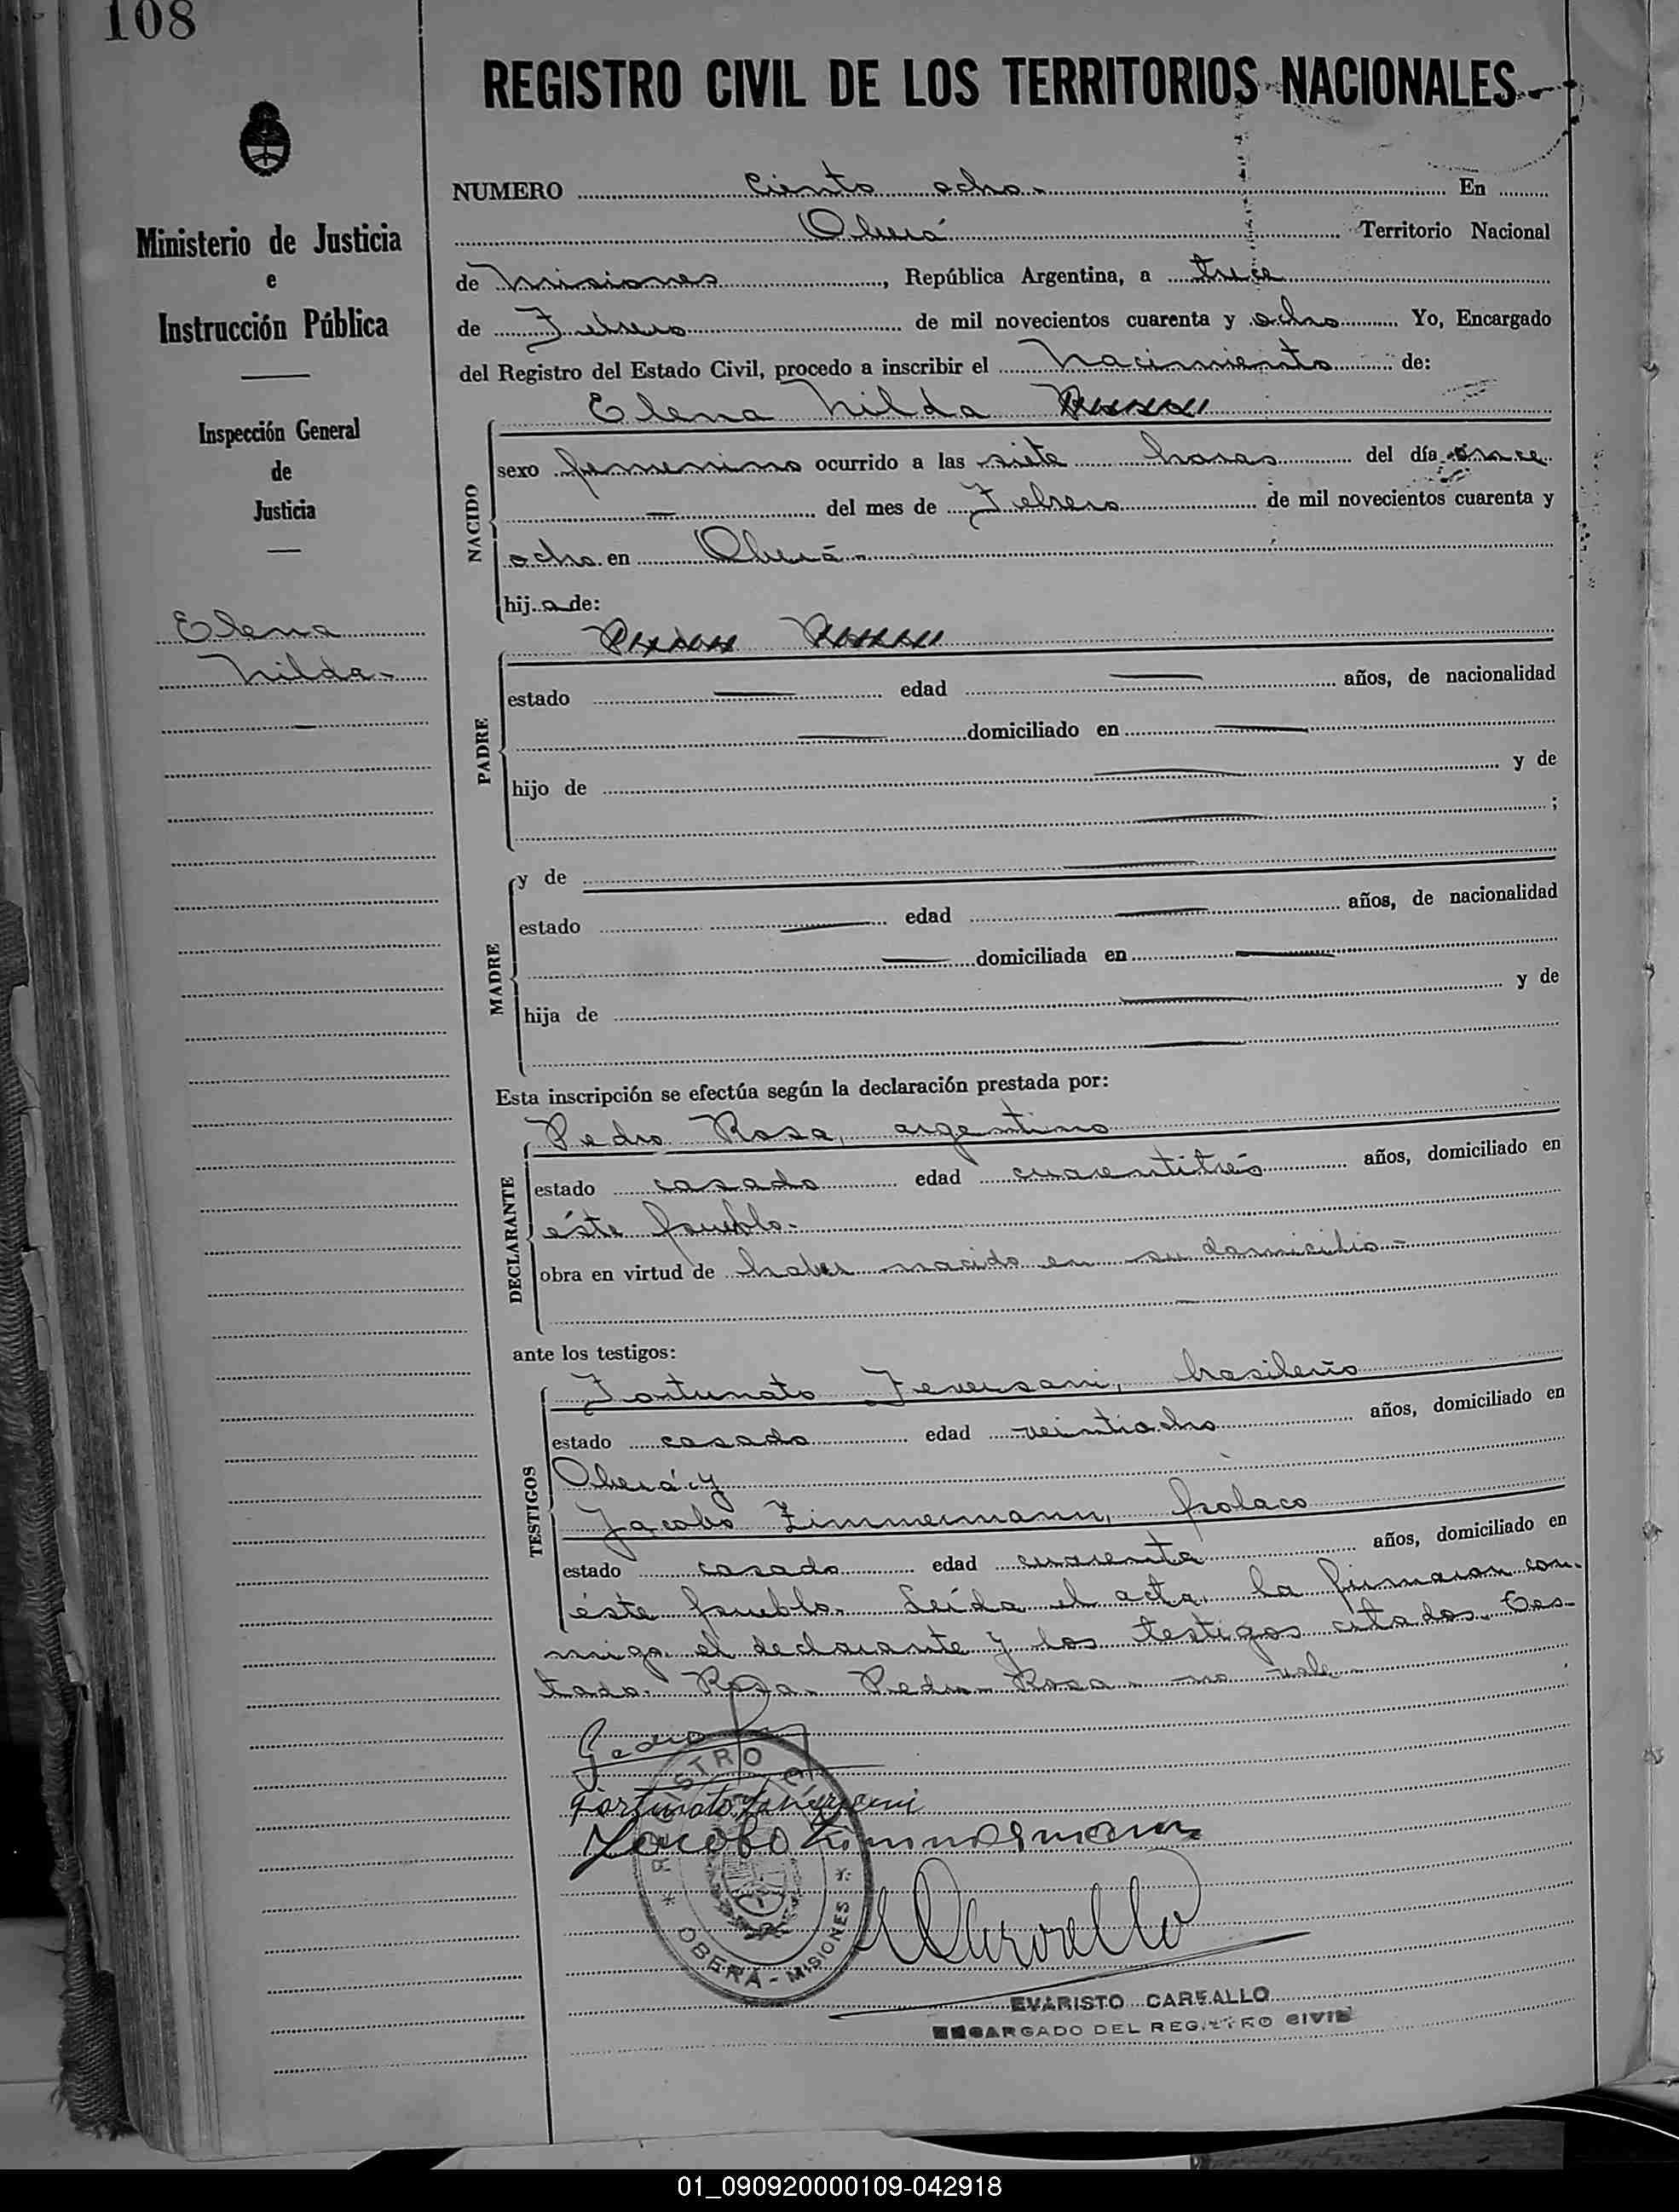 108
REGISTRO CIVIL DE LOS TERRITORIOS NACIONALES
Ministerio de Justicia
e
Instrucción Pública
Inspección General
de
Justicia
Elena
Nilda-
NUMERO Ciento ocho.- En
Oberá Territorio Nacional
de Misiones, República Argentina, a trece
de Febrero de mil novecientos cuarenta y ocho Yo, Encargado
del Registro del Estado Civil, procedo a inscribir el Nacimiento de:
Elena Nilda
NACIDO
sexo femenino ocurrido a las siete horas del día once
— del mes de Febrero de mil novecientos cuarenta y
ocho en Oberá-
hij a de:
PADRE
estado — edad — años, de nacionalidad
— domiciliado en —
hijo de — y de
— ;
MADRE
y de —
estado — edad — años, de nacionalidad
— domiciliada en —
hija de — y de
—
Esta inscripción se efectúa según la declaración prestada por:
DECLARANTE
Pedro Rosa, argentino
estado casado edad cuarentitrés años, domiciliado en
éste pueblo.-
obra en virtud de haber nacido en su domicilio.-
ante los testigos:
TESTIGOS
Fortunato Feversani, brasilero
estado casado edad veintiocho años, domiciliado en
Oberá y
Jacobo Zimmermann, polaco
estado casado edad cuarenta años, domiciliado en
éste pueblo. Leída el acta, la firmaron con-
migo el declarante y los testigos citados. Tes-
tado. Rosa. Pedro Rosa. no vale
Pedro
Fortunato
Jacobo Zimmermann
REGISTRO CIVIL
OBERA - MISIONES
EVARISTO CARVALLO
ENCARGADO DEL REGISTRO CIVIL
01_090920000109-042918